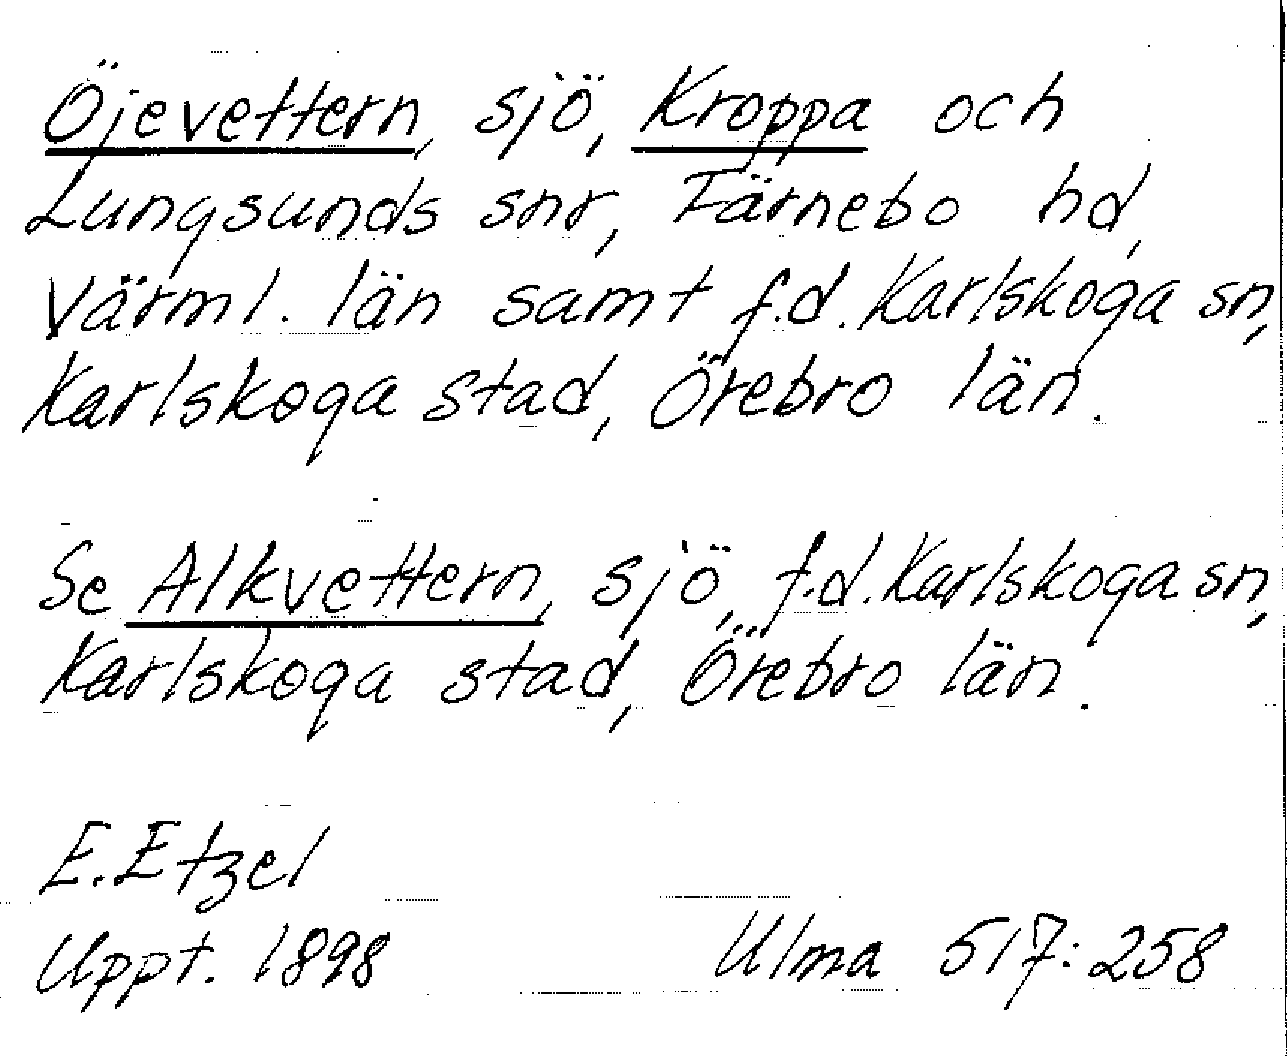 Öjevettern, sjö, Kroppa och
Lungsunds snr, Färnebo hd,
Värml. län samt f.d. Karlskoga sn,
Karlskoga stad, Örebro län.
Se Alkvettern, sjö, f.d. Karlskoga sn,
Karlskoga stad, Örebro län.
E. Etzel
Uppt. 1898 Ulma 517:258